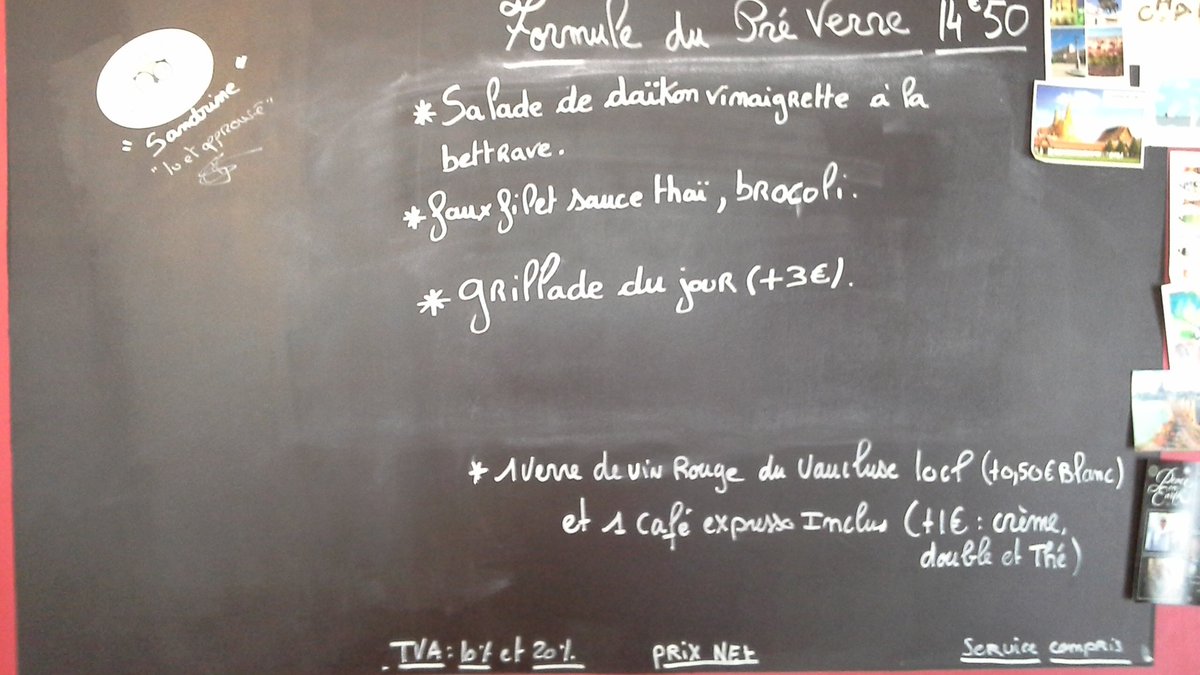 Formule du Pré Verre 14€50
* Salade de daïkon vinaigrette à la
bettrave.
* faux filet sauce thaï, broçoli.
* grillade du jour (+3€).
* 1 verre de vin Rouge du Vaucluse 10cl (+0,50€ Blanc)
et 1 café expresso Inclus (+1€ : crème,
double et Thé)
= Sandrine =
"lu et approuvé"
TVA: 10% et 20%. PRIX NET Service compris